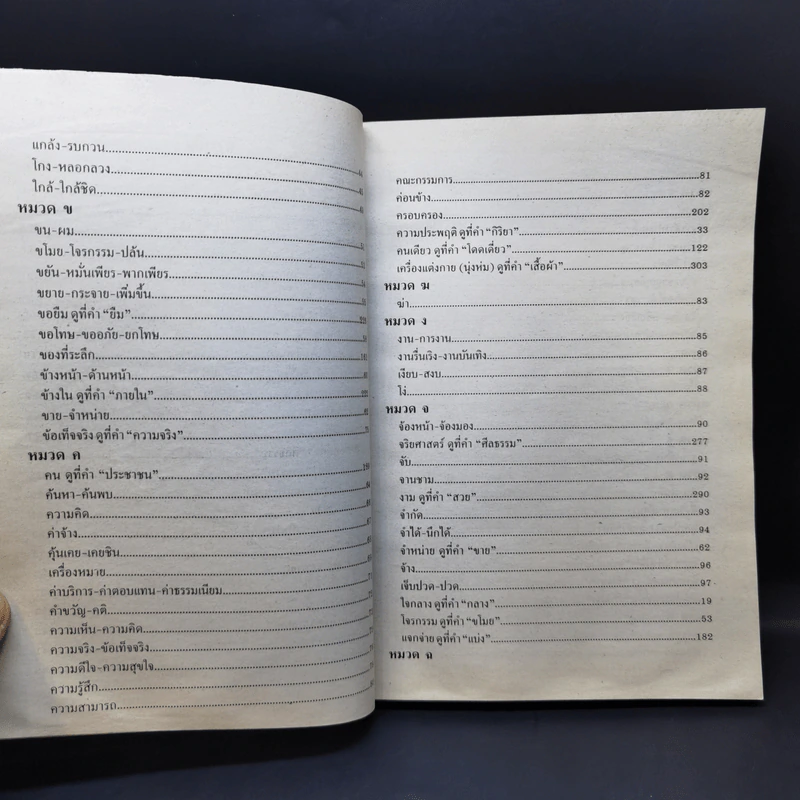 แกล้ง-รบกวน
โกง-หลอกลวง
ใกล้-ใกล้ชิด
หมวด ข
ขน-ผม
ขโมย-โจรกรรม-ปล้น
ขยัน-หมั่นเพียร-พากเพียร
ขยาย-กระจาย-เพิ่มขึ้น
ขอยืม ดูที่คำ "ยืม"
ขอโทษ-ขออภัย-ยกโทษ
ของที่ระลึก
ข้างหน้า-ด้านหน้า
ข้างใน ดูที่คำ "ภายใน"
ขาย-จำหน่าย
ข้อเท็จจริง ดูที่คำ "ความจริง"
หมวด ค
คน ดูที่คำ "ประชาชน"
ค้นหา-ค้นพบ
ความคิด
ค่าจ้าง
คุ้นเคย-เคยชิน
เครื่องหมาย
ค่าบริการ-ค่าตอบแทน-ค่าธรรมเนียม
คำขวัญ-คติ
ความเห็น-ความคิด
ความจริง-ข้อเท็จจริง
ความดีใจ-ความสุขใจ
ความรู้สึก
ความสามารถ
คณะกรรมการ 81
ค่อนข้าง 82
ครอบครอง 202
ความประพฤติ ดูที่คำ "กิริยา" 33
คนเดียว ดูที่คำ "โดดเดี่ยว" 122
เครื่องแต่งกาย (นุ่งห่ม) ดูที่คำ "เสื้อผ้า" 303
หมวด ฆ
ฆ่า 83
หมวด ง
งาน-การงาน 85
งานรื่นเริง-งานบันเทิง 86
เงียบ-สงบ 87
โง่ 88
หมวด จ
จ้องหน้า-จ้องมอง 90
จริยศาสตร์ ดูที่คำ "ศีลธรรม" 277
จับ 91
จานชาม 92
งาม ดูที่คำ "สวย" 290
จำกัด 93
จำได้-นึกได้ 94
จำหน่าย ดูที่คำ "ขาย" 62
จ้าง 96
เจ็บปวด-ปวด 97
ใจกลาง ดูที่คำ "กลาง" 19
โจรกรรม ดูที่คำ "ขโมย" 53
แจกจ่าย ดูที่คำ "แบ่ง" 182
หมวด ฉ